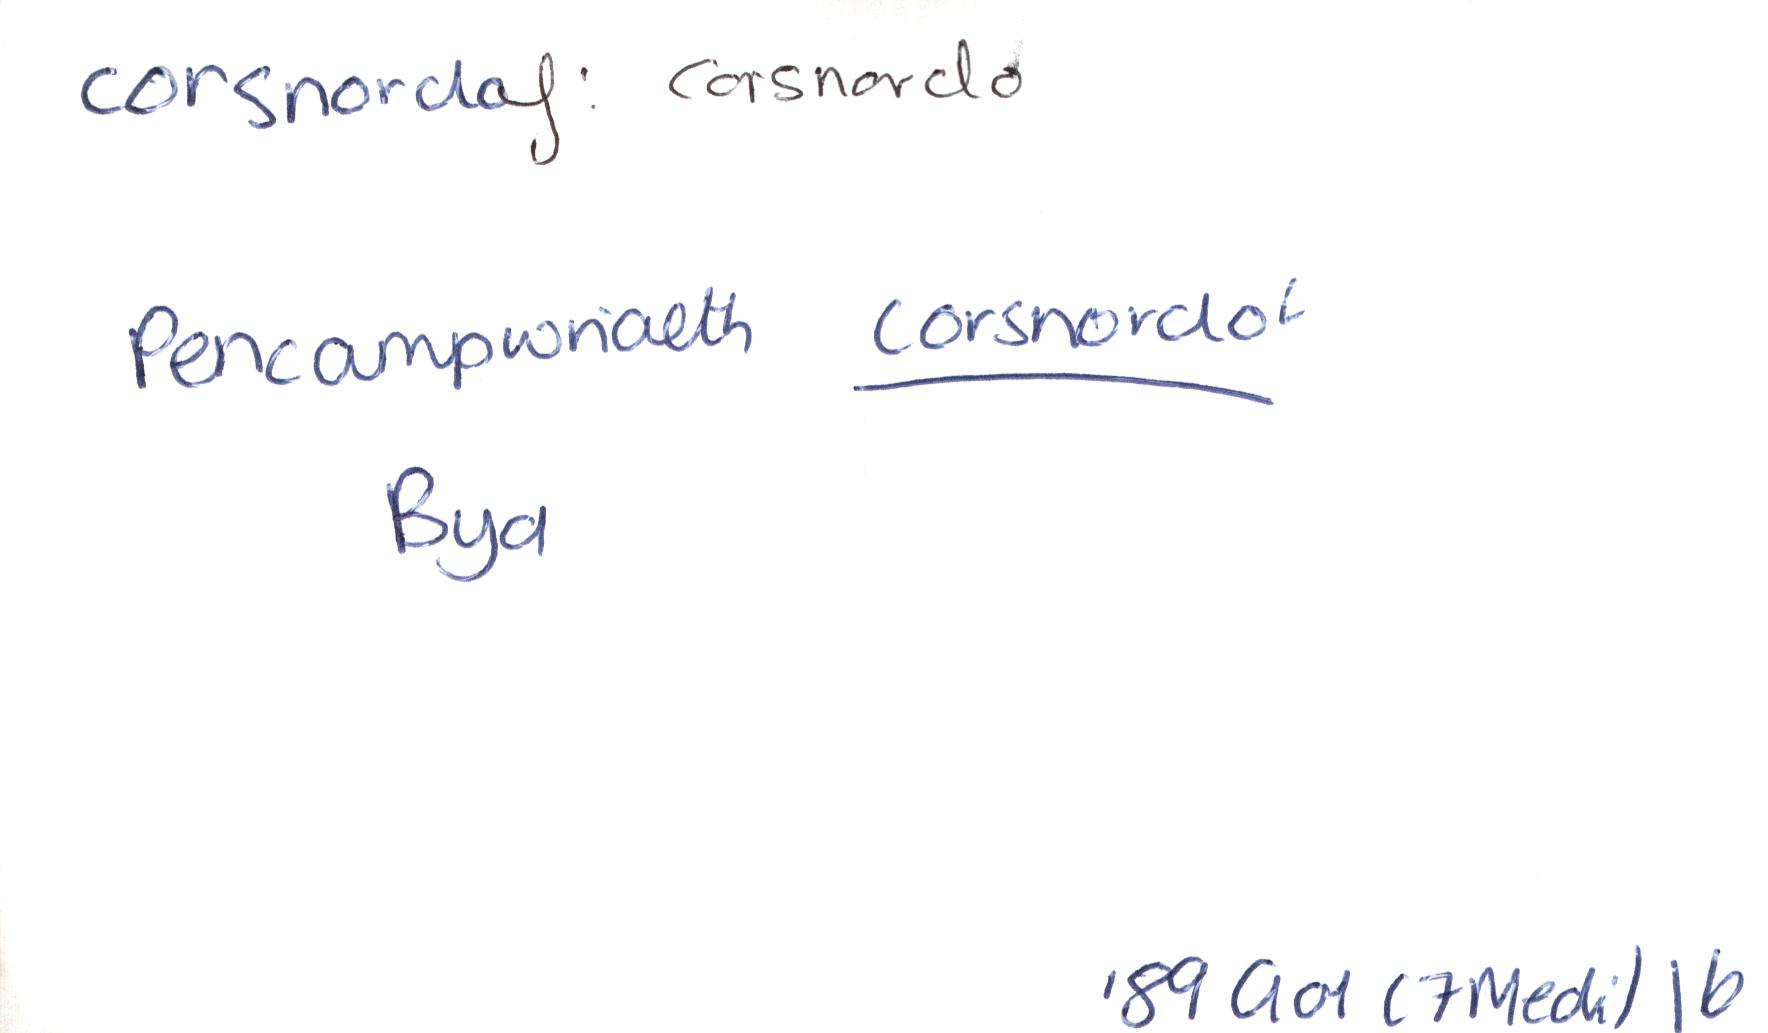 corsnordaf: corsnordo
Pencampwriaeth corsnordo
Byd
'89 Gol (7 Medi) 1b